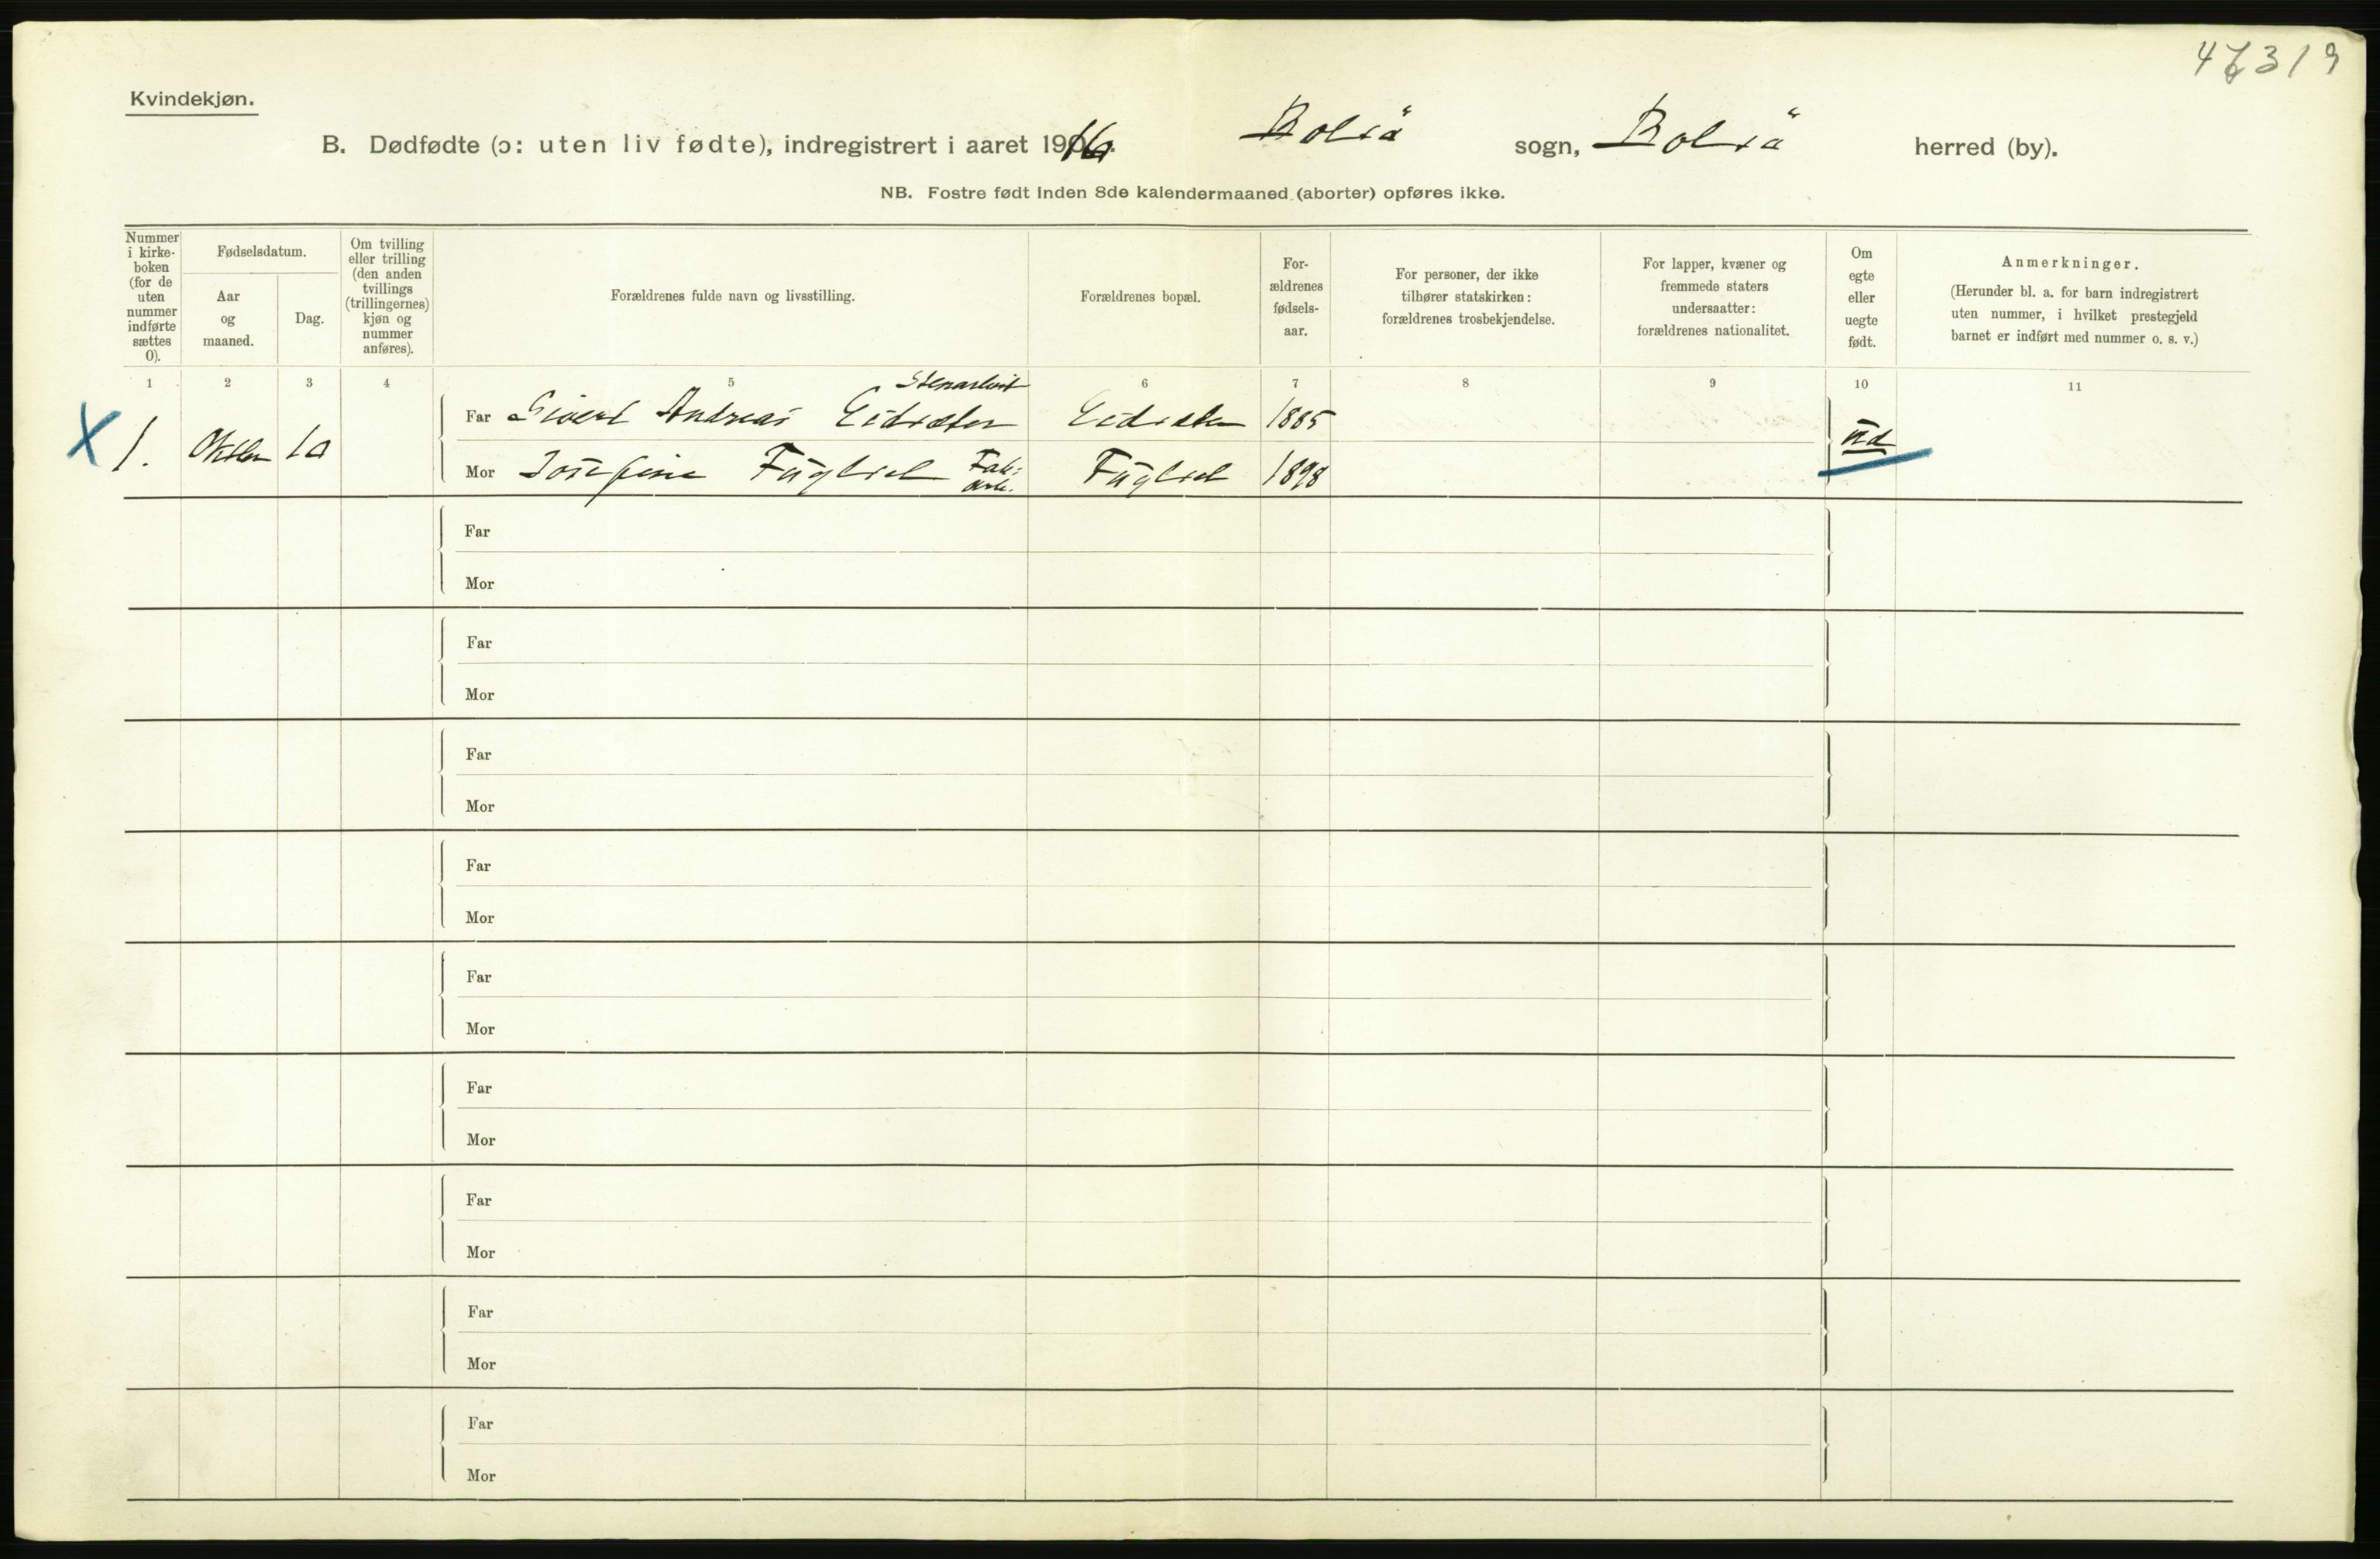 47319
Kvindekjøn.
B. Dødfødte (ɔ: uten liv fødte), indregistrert i aaret 1916. Bolsö sogn, Bolsö herred (by).
NB. Fostre født inden 8de kalendermaaned (aborter) opføres ikke.
Nummer
i kirke-
boken
(for de
uten
nummer
indførte
sættes
0).
Fødselsdatum.
Aar
og
maaned.
Dag.
Om tvilling
eller trilling
(den anden
tvillings
(trillingernes)
kjøn og
nummer
anføres).
Forældrenes fulde navn og livsstilling.
Forældrenes bopæl.
For-
ældrenes
fødsels-
aar.
For personer, der ikke
tilhører statskirken:
forældrenes trosbekjendelse.
For lapper, kvæner og
fremmede staters
undersaatter:
forældrenes nationalitet.
Om
egte
eller
uegte
født.
Anmerkninger.
(Herunder bl. a. for barn indregistrert
uten nummer, i hvilket prestegjeld
barnet er indført med nummer o. s. v.)
1 2 3 4 5 6 7 8 9 10 11
Stenarbeid
X 1. Oktbr 10
Far Sivert Andreas Eidsæter Eidsæter 1885
Mor Josefine Fuglset Fab. Fuglset 1898
arb.
ud
Far
Mor
Far
Mor
Far
Mor
Far
Mor
Far
Mor
Far
Mor
Far
Mor
Far
Mor
Far
Mor